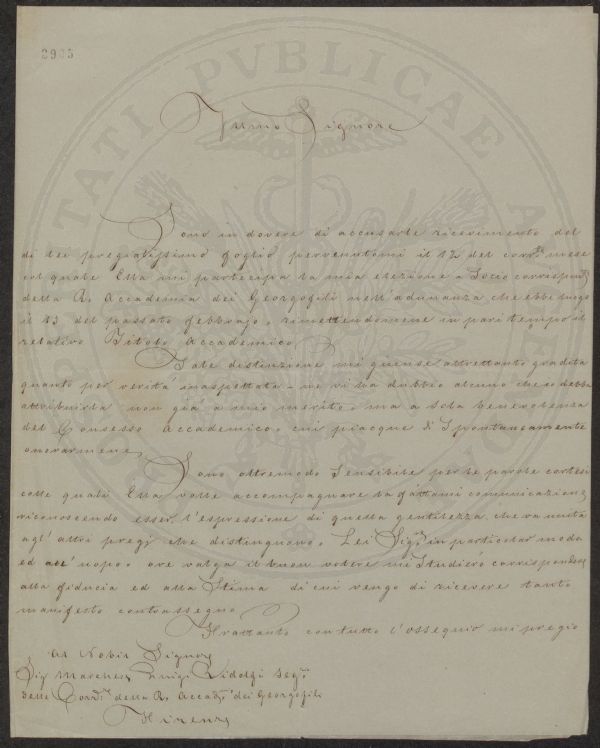 2905
Illmo Signore
Sono in dovere di accusarle ricevimento del
di lei pregiatissimo foglio pervenutomi il 12 del corr.te mese
col quale Ella mi partecipa la mia elezione a Socio corrispond.
della R. Accademia dei Georgofili nell'adunanza che ebbe luogo
il 13 del passato febbrajo, rimettendomene in pari tempo il
relativo Titolo Accademico.
Tale distinzione mi giunse altrettanto gradita
quanto per verità inaspettata - ne vi ha dubbio alcuno che io debba
attribuirla non già a mio merito, ma a sola benevolenza
del Consesso Accademico, cui piacque di spontaneamente
onorarmene.
Sono oltremodo sensibile per le parole cortesi
colle quali Ella volle accompagnare la fattami comunicazione
riconoscendo esser l'espressione di quella gentilezza che va unita
agl' altri pregi che distinguono Lei Sig.re in particolar modo
ed all' uopo, ove valga il buon volere mi studierò corrispondere
alla fiducia ed alla Stima di cui vengo di ricevere tanto
manifesto contrassegno
Frattanto con tutto l'ossequio mi pregio
Al Nobil Signore
Sig. Marchese Luigi Ridolfi Seg.o
delle Corr.ze della R. Accad.a dei Georgofili
Firenze